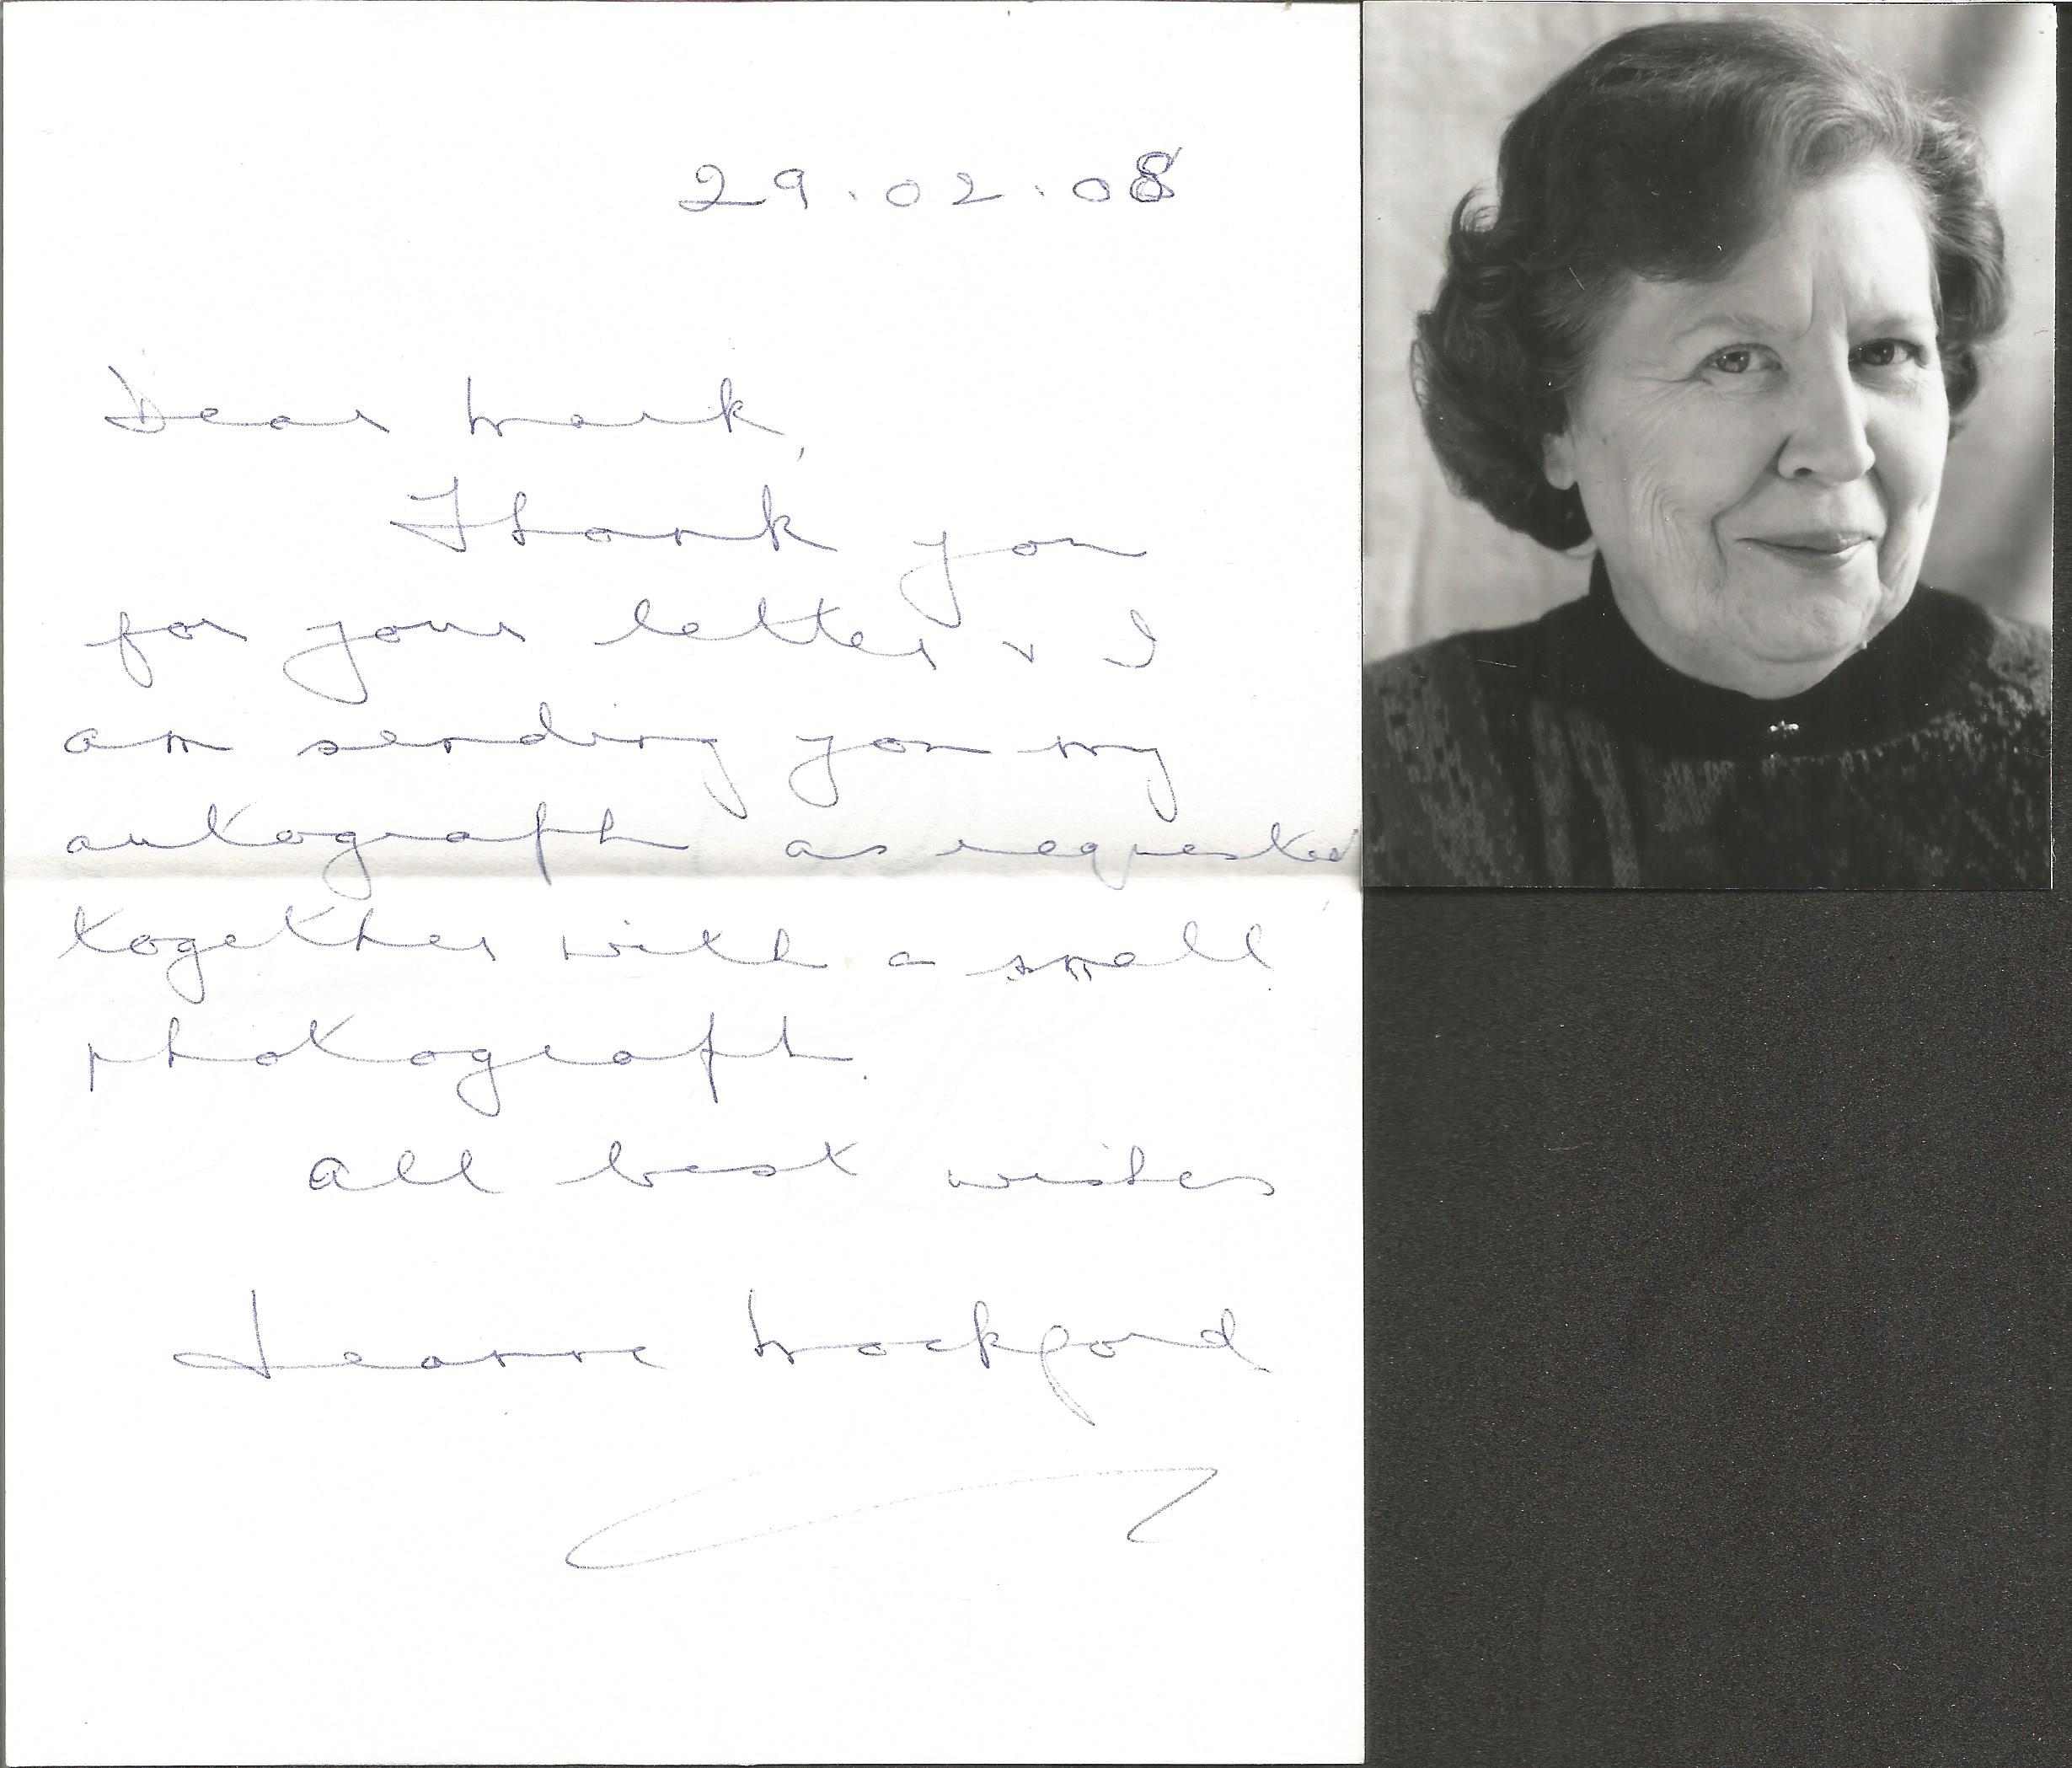 29.02.08
Dear Mark,
Thank you
for your letter & I
am sending you my
autograph as requested
together with a small
photograph.
all best wishes
Jeanne Mockford